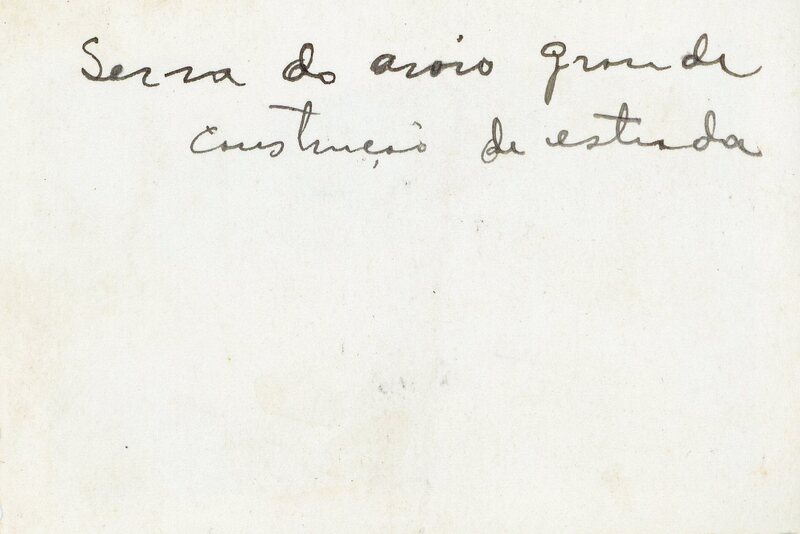 Serra do aroio grande
construção de estrada